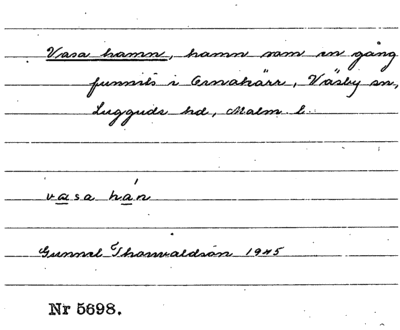 Vasa hamn, hamn som en gång
funnits i Ornakärr, Väsby sn,
Luggude hd, Malm l.
vasa hán
Gunnel Thorvaldson 1945
Nr 5698.